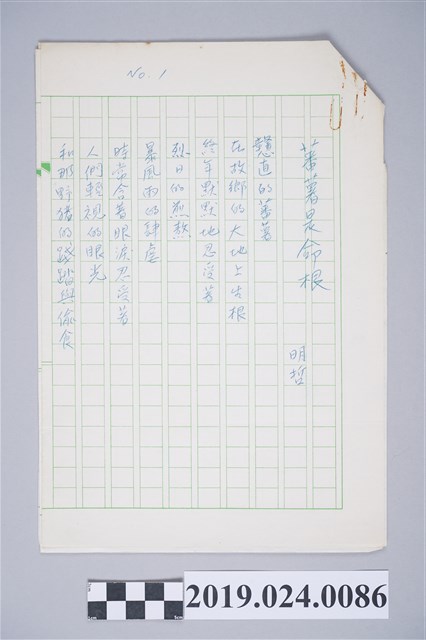 No. 1
蕃薯是命根
明哲
戇直的蕃薯
在故鄉的大地上生根
終年默默地忍受著
烈日的煎熬
暴風雨的肆虐
時常含著眼淚忍受著
人們輕視的眼光
和那野豬的踐踏與偷食
1cm
5cm
2019.024.0086